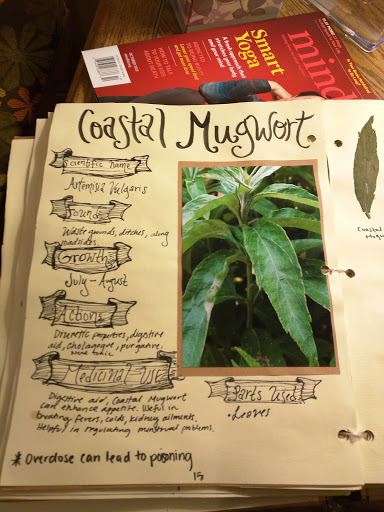 Smart
Yoga
mind
Coastal MugWort
Scientific Name
Artemisia Vulgaris
Found
Waste grounds, ditches, along
roadsides.
Growth
July - August
Actions
Diuretic properties, digestive
aid, cholagogue, purgative,
Medicinal Use
Digestive aid, Coastal Mugwort
can enhance appetite. Useful in
treating fevers, colds, kidney ailments.
Helpful in regulating menstrual problems.
Parts Used
• Leaves
* Overdose can lead to poisoning
15
Coastal